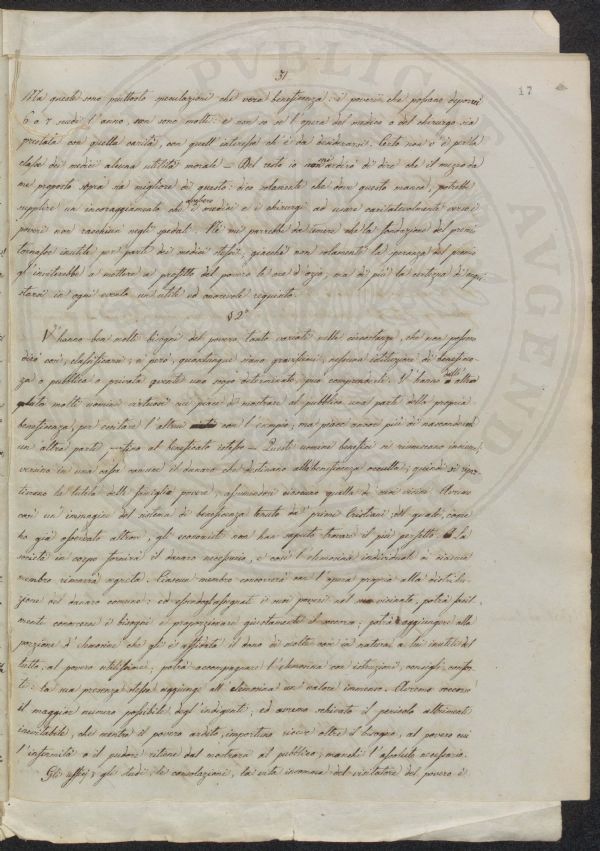 31
17
Ma queste sono piuttosto speculazioni che vera beneficenza: i poveri che possano deporre
6 o 7 scudi l'anno, son sono molti: e non so se l'opera del medico o del chirurgo sia
prestata con quella carità, con quell'interesse ch'è da desiderarsi. Certo non v'è per la
classe dei medici alcuna utilità morale — Del resto io non ardirò di dire che il mezzo da
me proposto sopra sia migliore di questo: dico solamente che dove questo manca, potrebbe
supplire un incoraggiamento che i medici e i chirurgi ad usare caritatevolmente verso i
poveri non racchiusi negli spedali. Nè mi parrebbe da temere che la fondazione dei premi
tornasse inutile per parte dei medici stessi, giacchè non solamente la speranza del premio
gl'inviterebbe a mettere a profitto del povero le ore d'ozio, ma di più la certezza d'acqui
starsi in ogni evento un utile ed onorevole requisito.
§ 2º
V'hanno ben molti bisogni del povero tanto variati nelle circostanze, che non possono
dirò così, classificarsi; e però, quantunque siano gravissimi, nessuna istituzione di beneficen-
za o pubblica o privata avente uno scopo determinato, può comprenderli. V'hanno altro
molti uomini virtuosi cui piace di mostrare al pubblico una parte della propria
beneficenza, per eccitare l'altrui con l'esempio, ma piace ancora più di nasconderne
un'altra parte, fino al beneficato istesso — Questi uomini benefici si riuniscano insieme,
versino in una cassa comune il danaro che destinano alla beneficenza occulta; quindi si ripar-
tiscano la tutela delle famiglie povere, assumendosi ciascuno quella di suoi vicini. Avremo
così un'immagine del sistema di beneficenza tenuto da' primi Cristiani del quale, come
ho già osservato altrove, gli economisti non han saputo trovare il più perfetto. La
società in corpo fornirà il danaro necessario, e così l'elemosina individuale di ciascun
membro rimarrà segreta. Ciascun membro concorrerà con l'opera propria alla distribu-
zione del danaro comune: ed essendogli assegnati i suoi poveri nel vicinato, potrà facil-
mente conoscerne i bisogni e proporzionare giustamente il soccorso: potrà aggiungere alla
porzione d'elemosine che gli è affidata il dono di molte cose in natura a lui inutili del
tutto, al povero utilissime, potrà accompagnare l'elemosina con istruzioni, consigli, confor-
ti: la sua presenza stessa aggiunge all'elemosina un valore immenso. Avremo soccorso
il maggior numero possibile degl'indigenti, ed avremo schivato il pericolo altrimenti
inevitabile, che mentre il povero ardito, importuno riceve oltre il bisogno, al povero cui
l'infermità o il pudore ritiene dal mostrarsi al pubblico, manchi l'assoluto necessario.
Gli uffizj, gli studi, le consolazioni, la vita insomma del visitatore del povero è